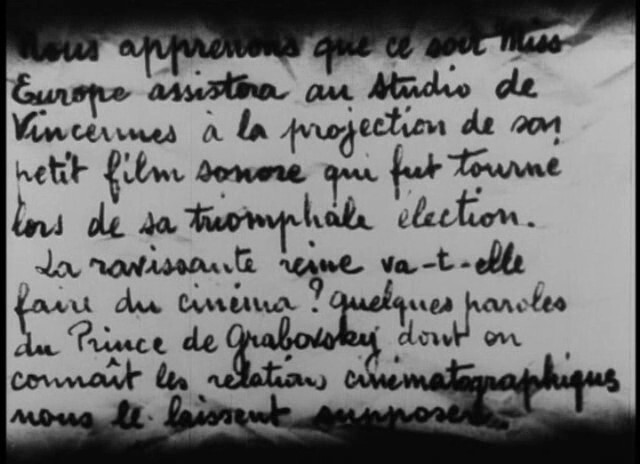 Nous apprenons que ce soir Miss
Europe assistera au studio de
Vincennes à la projection de son
petit film sonore qui fut tourné
lors de sa triomphale élection.
La ravissante reine va-t-elle
faire du cinéma ? quelques paroles
du Prince de Grabovsky dont on
connaît les relations cinématographiques
nous le laissent supposer...